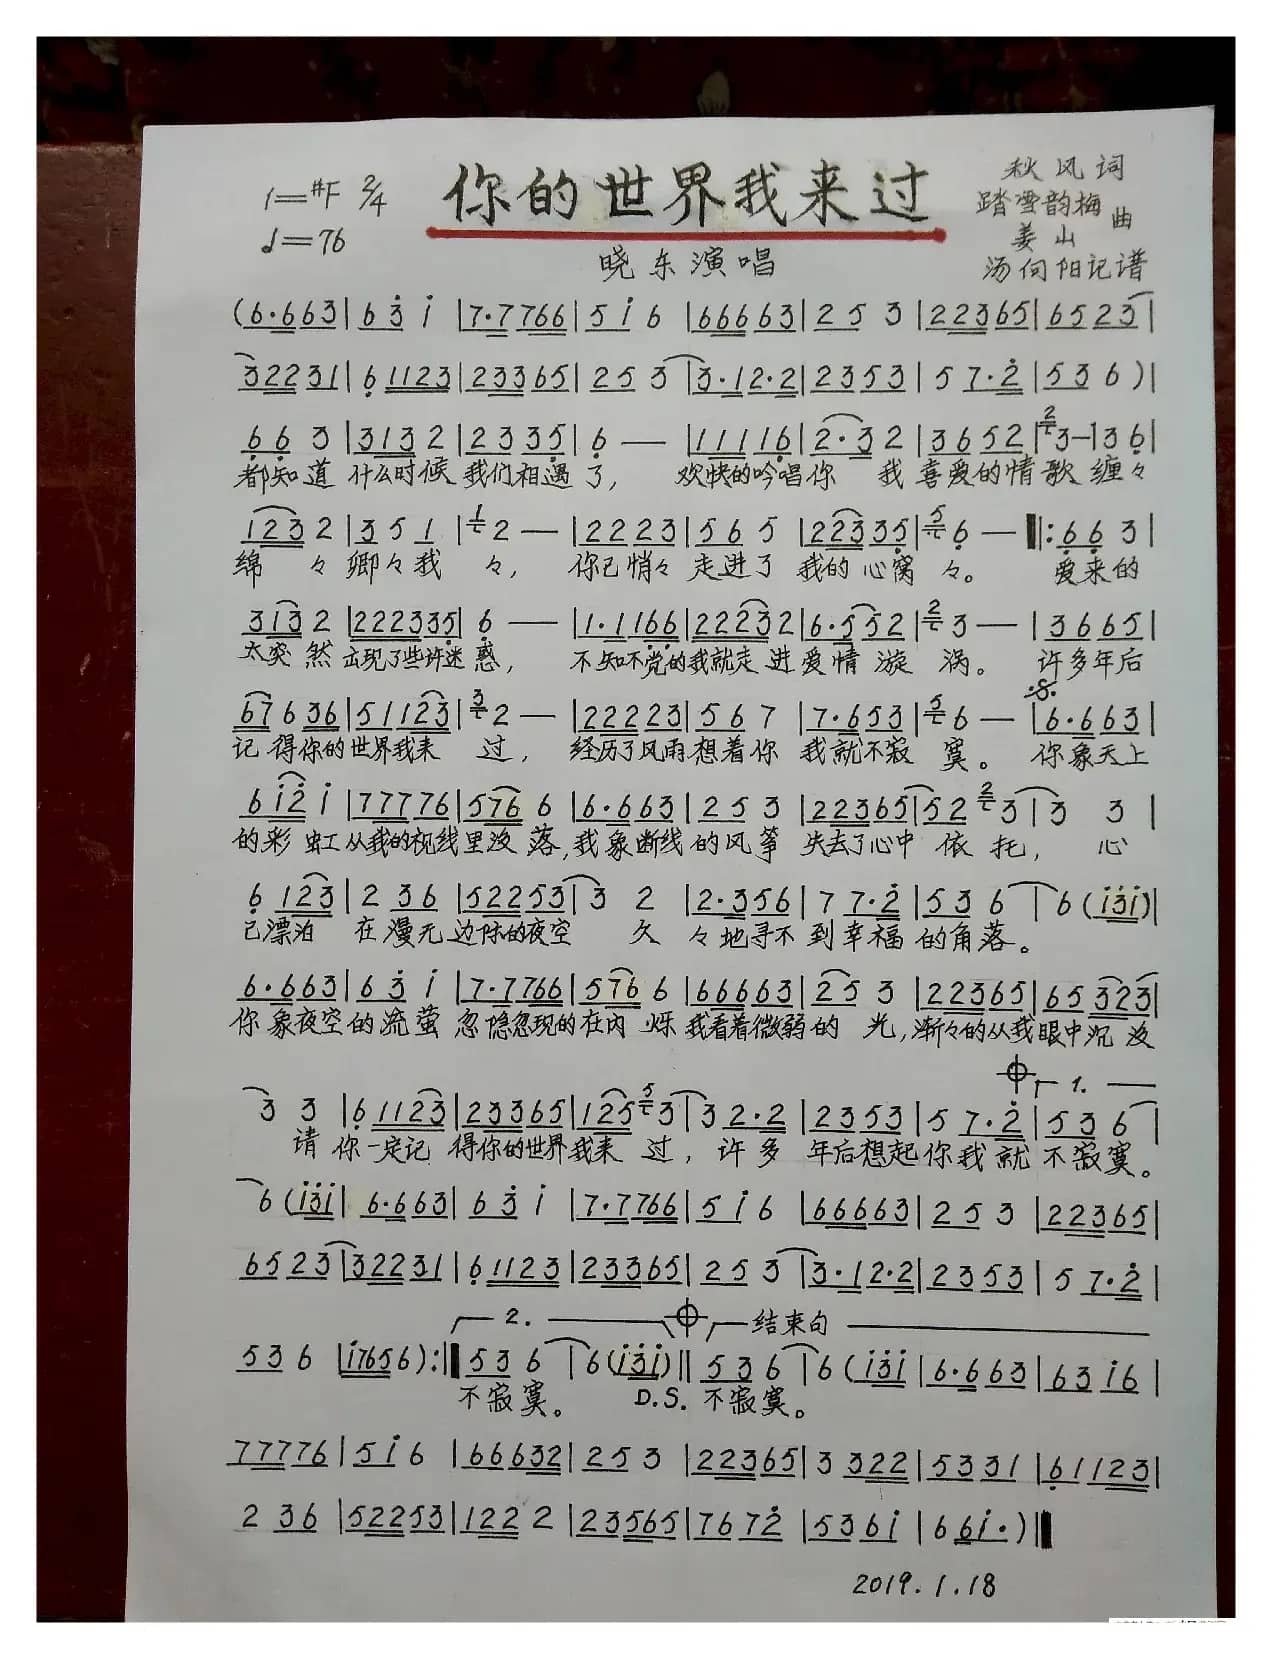 1=#F 2/4 你的世界我来过 秋风词
♩=76 踏雪韵梅 姜山 曲
晓东演唱 汤向阳记谱
(6·663|63i|7·7766|5i6|66663|253|22365|6523|
32231|61123|23365|253|3·12·2|2353|57·2|536)|
663|3132|2335|6—|11116|2·32|3652|3—|36|
都知道 什么时候 我们相遇了, 欢快的吟唱你 我喜爱的情歌 缠々
1232|351|2—|2223|565|22335|6—‖:663|
绵々卿々我々, 你已悄々走进了 我的心窝々。 爱来的
3132|222335|6—|1·1166|22232|6·552|3—|3665|
太突然 出现了些许迷惑, 不知不觉的我就走进爱情漩涡。 许多年后
67636|51123|2—|22223|567|7·653|6—|6·663|
记得你的世界我来过, 经历了风雨想着你 我就不寂寞。 你象天上
6i2i|77776|5766|6·663|253|22365|523|33|
的彩虹从我的视线里没落,我象断线的风筝 失去了心中依托, 心
6123|236|52253|32|2·356|77·2|536|6(i3i)|
已漂泊 在漫无边际的夜空 久々地寻不到幸福的角落。
6·663|63i|7·7766|5766|66663|253|22365|65323|
你象夜空的流萤 忽隐忽现的在闪烁 我看着微弱的光,渐々的从我眼中沉没
1.
33|61123|23365|1253|32·2|2353|57·2|536|
请你一定记得你的世界我来过, 许多年后想起你我就不寂寞。
6(i3i|6·663|63i|7·7766|5i6|66663|253|22365|
6523|32231|61123|23365|253|3·12·2|2353|57·2|
2. 结束句
536|i7656):‖536|6(i3i)‖536|6(i3i|6·663|63i6|
不寂寞。 D.S. 不寂寞。
77776|5i6|66632|253|22365|3322|5331|61123|
236|52253|1222|23565|7672|536i|66i·)‖
2019.1.18